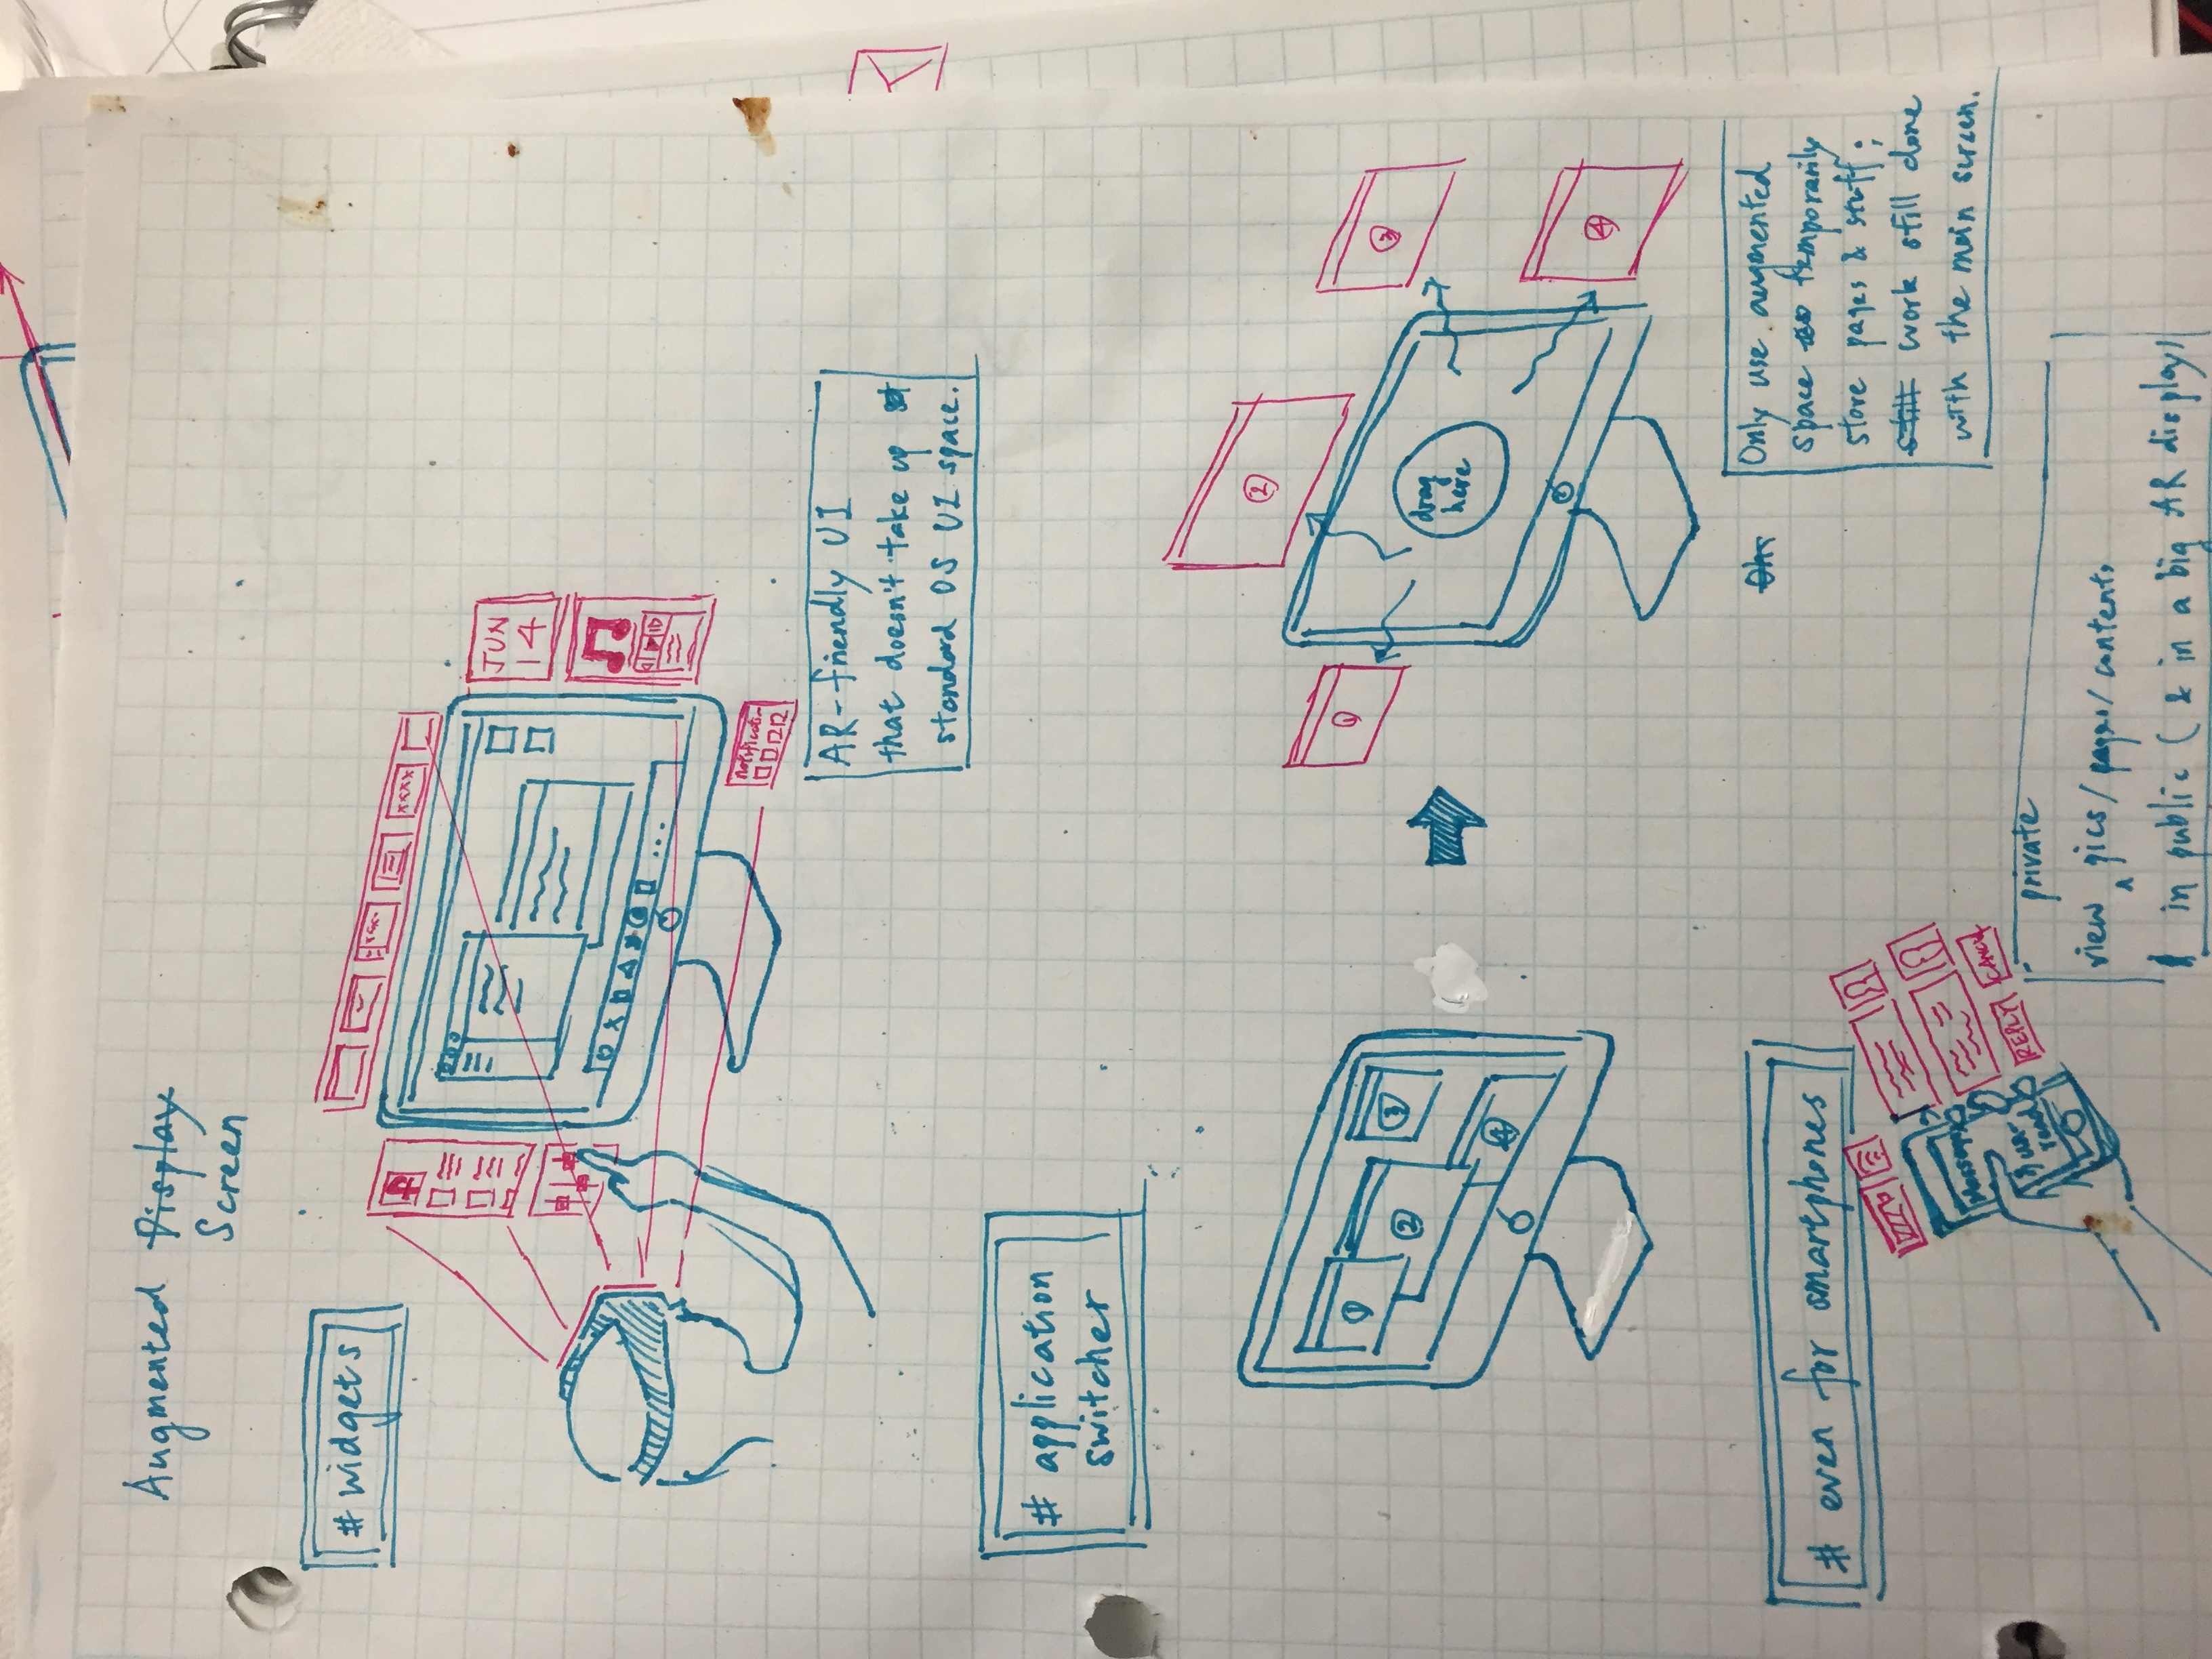 Augmented Display
Screen
# widgets
JUN
14
notificati-
AR-friendly UI
that doesn't take up
standard OS UI space.
# application
switcher
1
2
3
4
1
2
3
4
drag
here
Only use augmented
space temporarily
store pages & stuff;
still work still done
with the main screen.
# even for smartphones
Message
un-
read
REPLY
CANCEL
private
view pics / pages / contents
in public ( & in a big AR display)